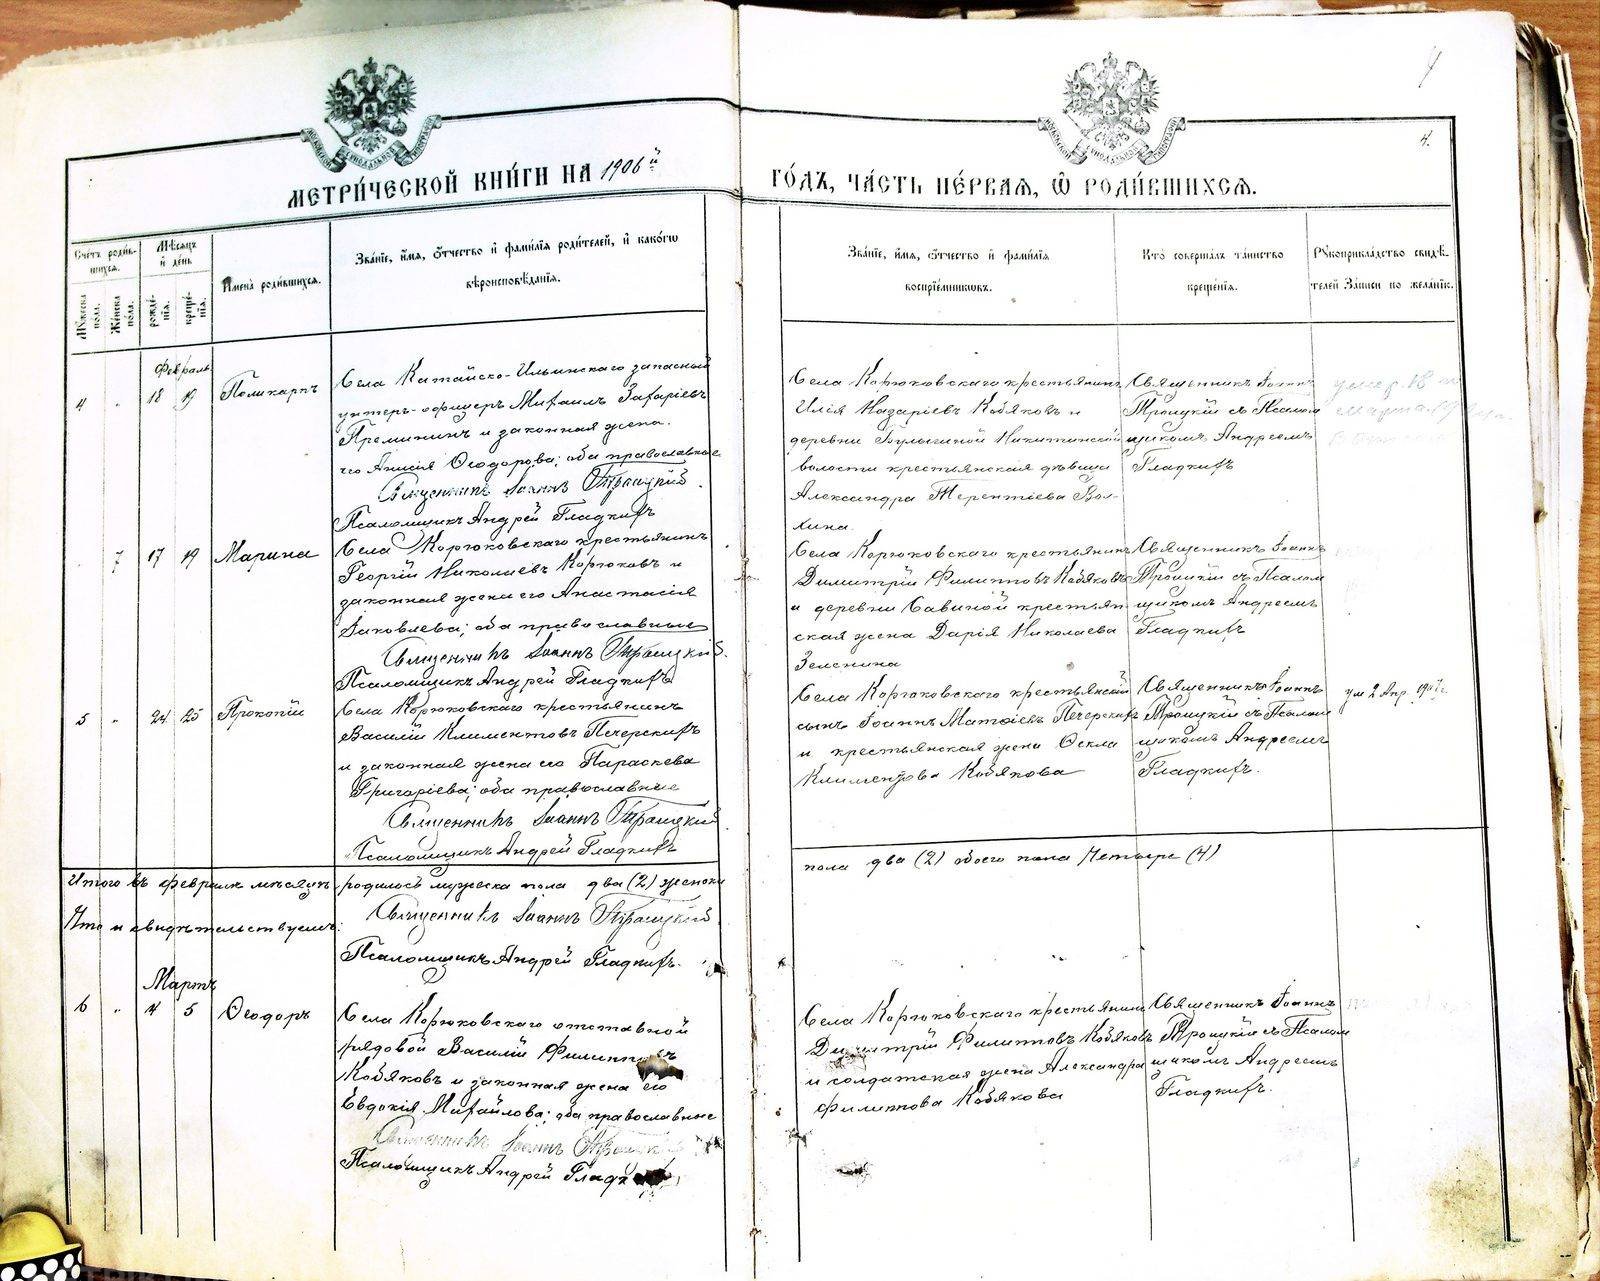 4.
МЕТРИ́ЧЕСКОЙ КНИ́ГИ НА 1906й
ГО́ДЪ, ЧА́СТЬ ПЕ́РВАЯ, Ѡ РОДИ́ВШИХСЯ.
Сче́тъ роди́в-
шихся.
Му́жеска
по́ла.
Же́нска
по́ла.
Мѣ́сяцъ
и҆ де́нь
рожде́-
нїя.
креще́-
нїя.
И҆мена̀ роди́вшихся.
Зва́нїе, и҆́мя, ѻ҆́тчество и҆ фами́лїя роди́телей, и҆ како́гѡ
вѣроисповѣ́данїя.
Зва́нїе, и҆́мя, ѻ҆́тчество и҆ фами́лїя
воспрїе́мниковъ.
Кто̀ соверша́лъ та́инство
креще́нїя.
Рꙋкоприкла́дство свидѣ́-
телей за́писи по жела́нїю.
Февраль
4 " 18 19 Поликарпъ
Села Катайско-Ильинскаго запасный
унтеръ-офицеръ Михаилъ Захаріевъ
Премининъ и законная жена
его Анисія Ѳеодорова; оба православные
Священникъ Іоаннъ Троицкій.
Псаломщикъ Андрей Гладкихъ
Села Корюковскаго крестьянинъ
Илія Назаріевъ Кобяковъ и
деревни Булыгиной Никитинской
волости крестьянская дѣвица
Александра Терентіева Вол-
хина.
Священникъ Іоаннъ
Троицкій съ Псалом
щикомъ Андреемъ
Гладкихъ
умер. 18
марта
" 7 17 19 Марина
Села Корюковскаго крестьянинъ
Георгій Николаевъ Корюковъ и
законная жена его Анастасія
Іаковлева; оба православные
Священникъ Іоаннъ Троицкій.
Псаломщикъ Андрей Гладкихъ
Села Корюковскаго крестьянинъ
Димитрій Филипповъ Кобяковъ
и деревни Савиной крестьян
ская жена Дарія Николаева
Зеленина
Священникъ Іоаннъ
Троицкій съ Псалом
щикомъ Андреемъ
Гладкихъ
5 " 24 25 Прокопій
Села Корюковскаго крестьянинъ
Василій Климентовъ Печерскихъ
и законная жена его Параскева
Григоріева; оба православные
Священникъ Іоаннъ Троицкій
Псаломщикъ Андрей Гладкихъ
Села Корюковскаго крестьянскій
сынъ Іоаннъ Матѳіевъ Печерскихъ
и крестьянская жена Ѳекла
Климентова Кобякова
Священникъ Іоаннъ
Троицкій съ Псалом
щикомъ Андреемъ
Гладкихъ.
ум 2 Апр.
Итого въ февралѣ мѣсяцѣ родилось мужеска пола два (2) женска
пола два (2) обоего пола четыре (4)
Что и свидѣтельствуемъ:
Священникъ Іоаннъ Троицкій.
Псаломщикъ Андрей Гладкихъ.
Мартъ
6 " 4 5 Ѳеодоръ
Села Корюковскаго отставной
рядовой Василій Филипповъ
Кобяковъ и законная жена его
Евдокія Михайлова; оба православные
Священникъ Іоаннъ Троицкій
Псаломщикъ Андрей
Села Корюковскаго крестьянинъ
Димитрій Филипповъ Кобяковъ
и солдатская жена Александра
Филиппова Кобякова
Священникъ Іоаннъ
Троицкій съ Псалом
щикомъ Андреемъ
Гладкихъ.